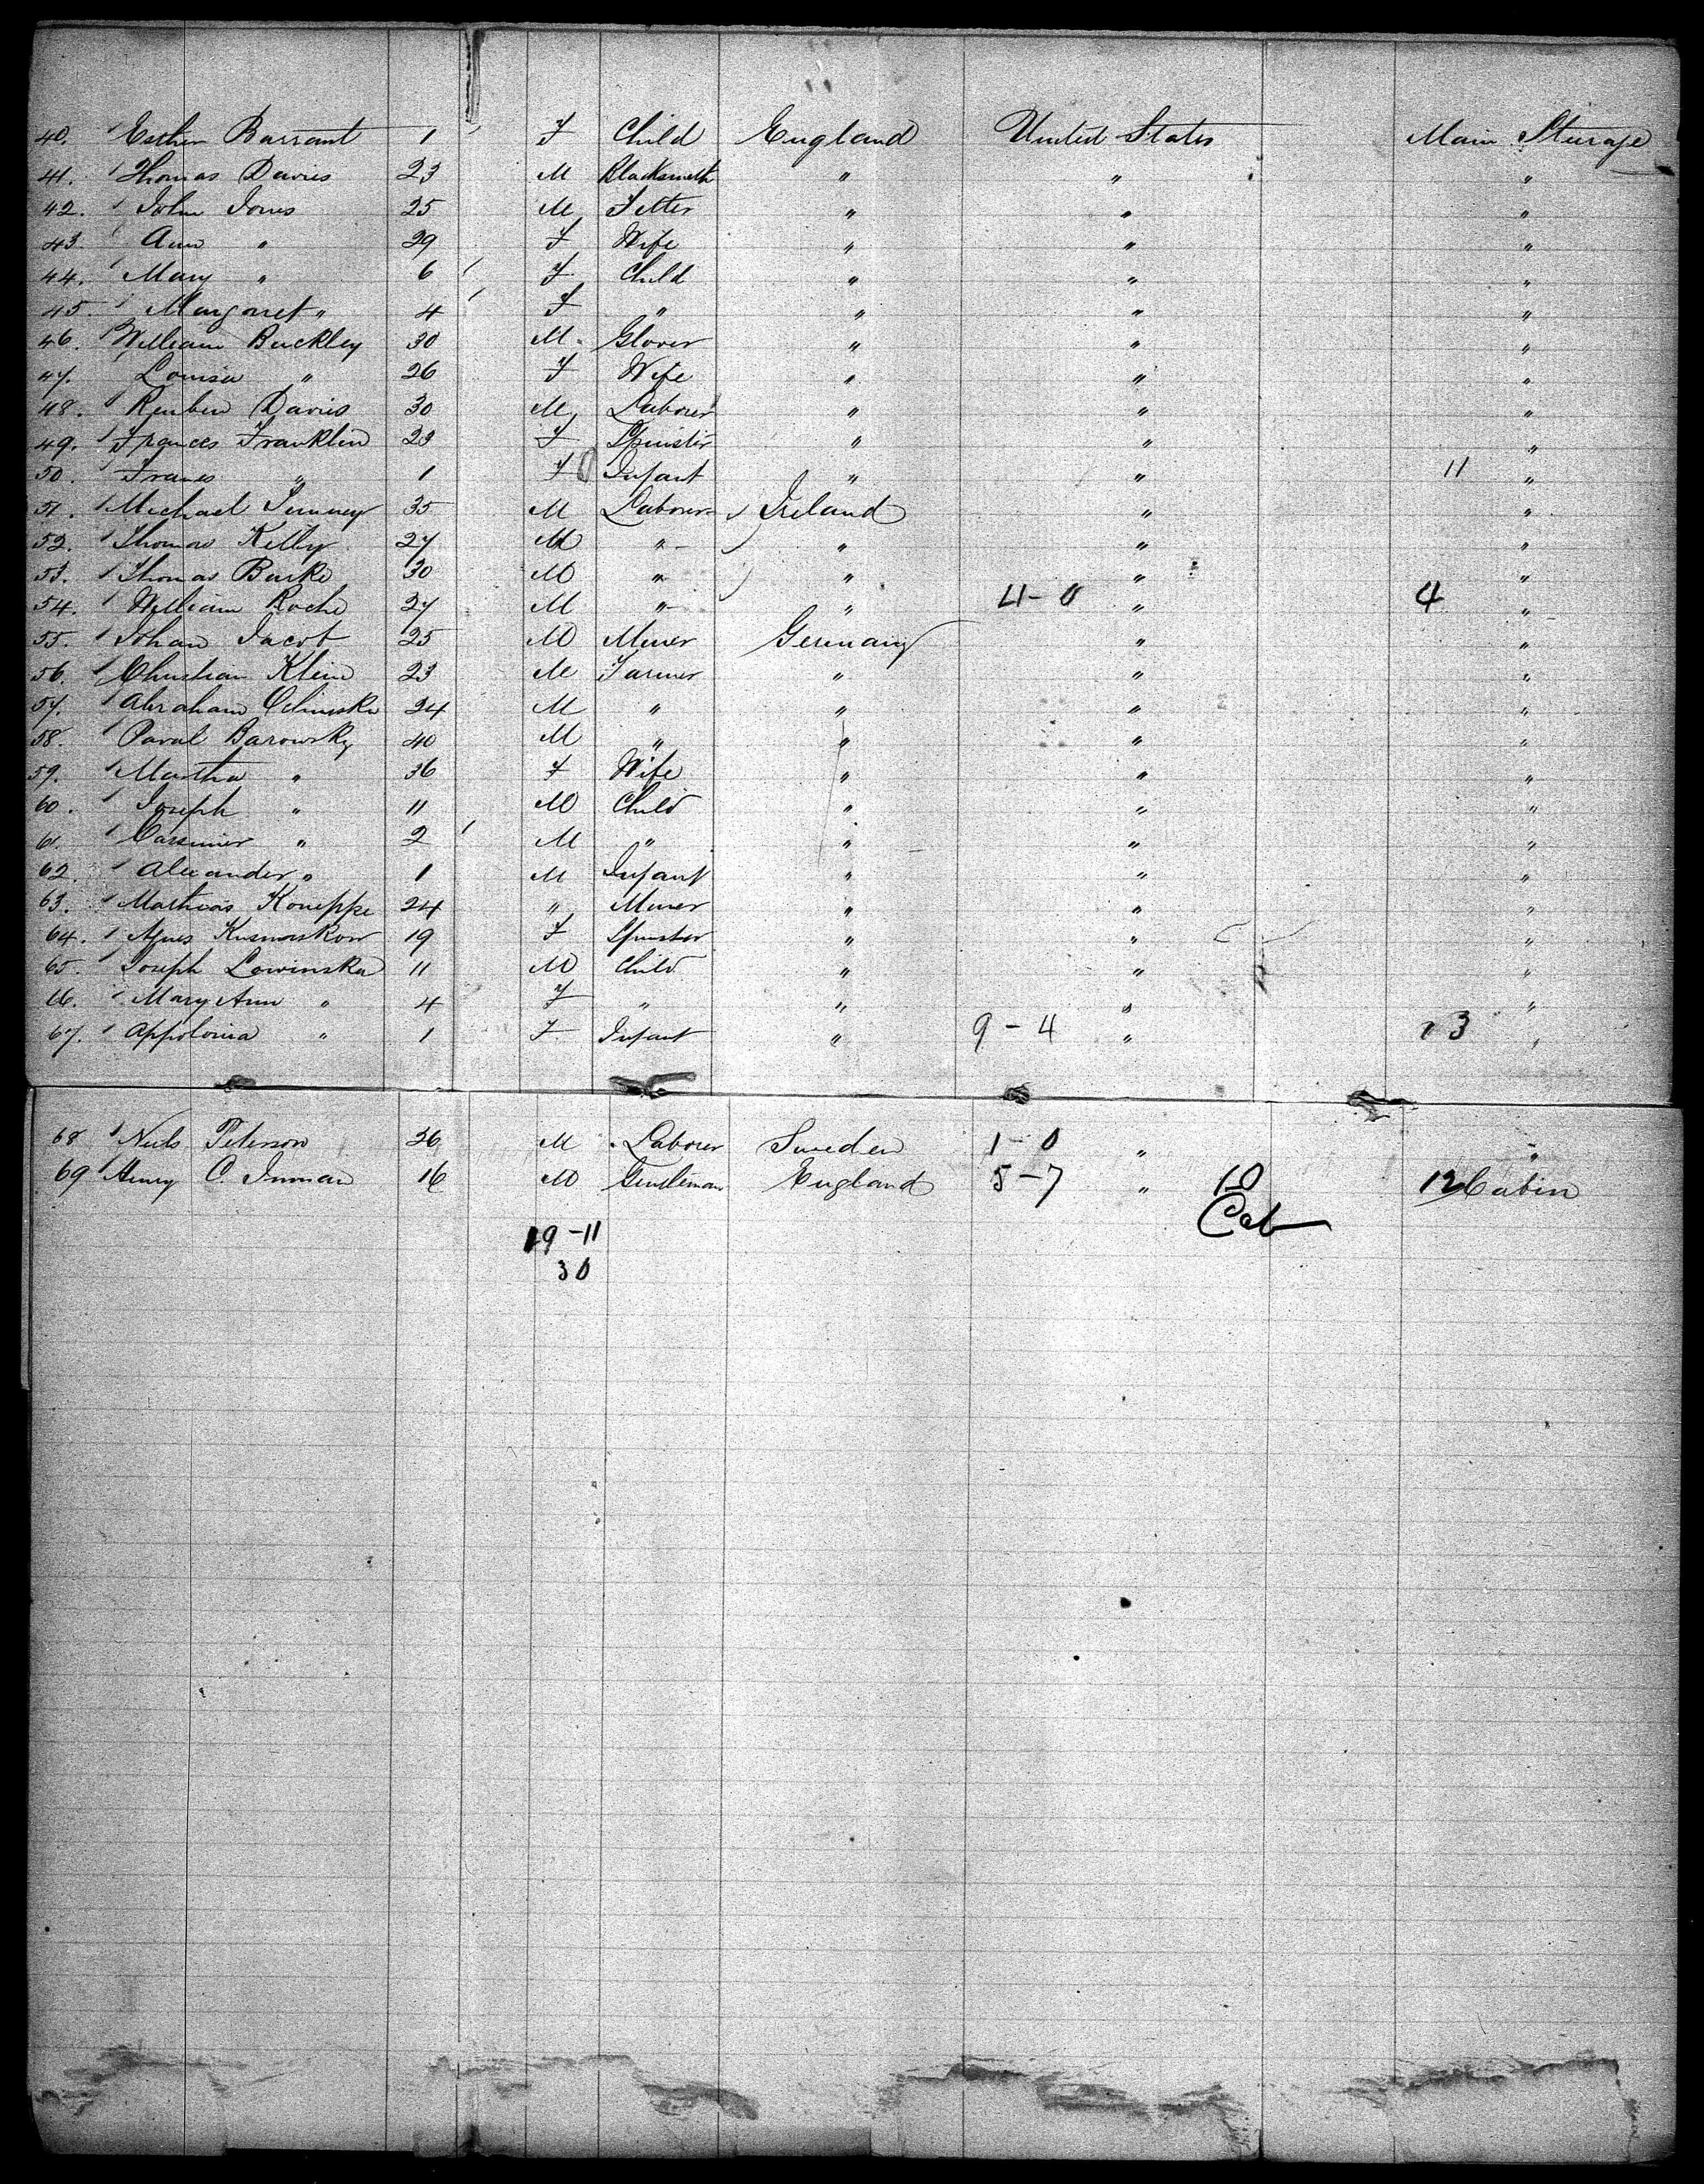 40. Esther Barrant 1 F Child England United States Main Steerage
41. Thomas Davies 23 M Blacksmith " " "
42. John Jones 25 M Fitter " " "
43. Ann " 29 F Wife " " "
44. Mary " 6 F Child " " "
45. Margaret " 4 F " " " "
46. William Buckley 30 M. Glover " " "
47. Louisa " 26 F Wife " " "
48. Reuben Davies 30 M Laborer " " "
49. Frances Franklin 23 F Spinster " " "
50. Frances " 1 F Infant " " 11 "
51. Michael 35 M Laborer Ireland " "
52. Thomas Kelly 27 M " " " "
53. Thomas Burke 30 M " " " "
54. William Roche 27 M " " 4-0 " 4 "
55. Johan Jacob 25 M Miner Germany " "
56. Christian Klein 23 M Farmer " " "
57. Abraham 24 M " " " "
58. Paval Barowsky 40 M " " " "
59. Martha " 36 F Wife " " "
60. Joseph " 11 M Child " " "
61. Cassimer " 2 M " " " "
62. Alexander " 1 M Infant " " "
63. Mathias Koneppe 24 " Miner " " "
64. Agnes 19 F Spinster " " "
65. Joseph Lowinska 11 M Child " " "
66. Mary Ann " 4 F " " " "
67. Appolonia " 1 F Infant " 9-4 " 13 "
68 Nels Peterson 26 M Laborer Sweden 1-0 " "
69 Henry C. Inman 16 M Gentleman England 5-7 " 10 12 Cabin
Cab
19-11
30